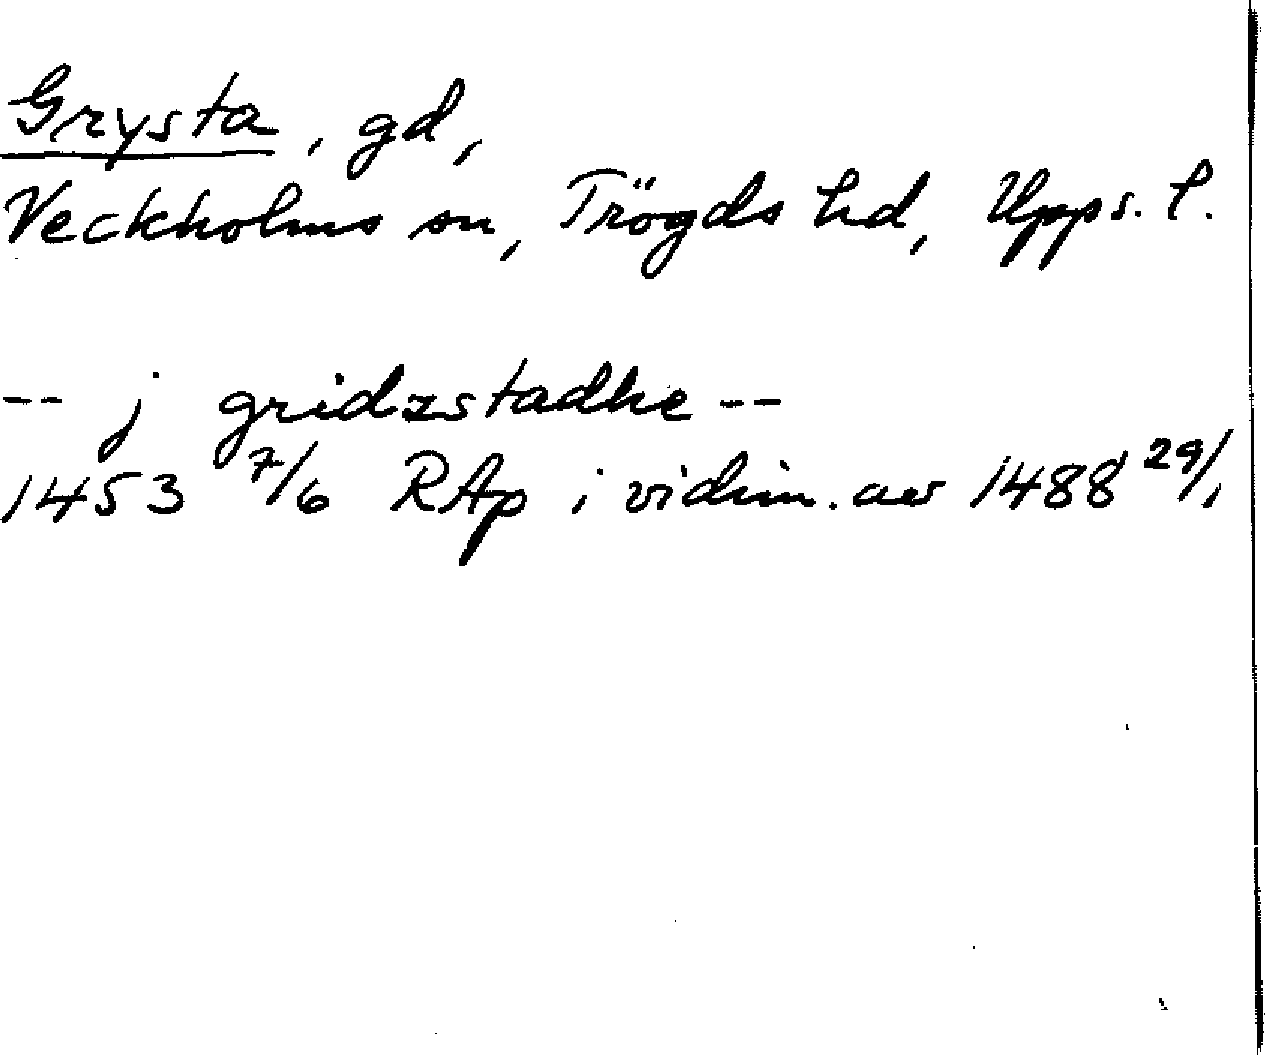 Grysta, gd,
Veckholms sn, Trögds hd, Upps. l.
-- j gridzstadhe --
1453 7/6 RAp i vidim. av 1488 29/1